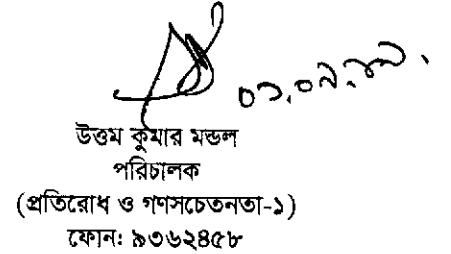 ০১.০৯.১৯.
উত্তম কুমার মন্ডল
পরিচালক
(প্রতিরোধ ও গণসচেতনতা-১)
ফোন: ৯৩৬২৪৫৮